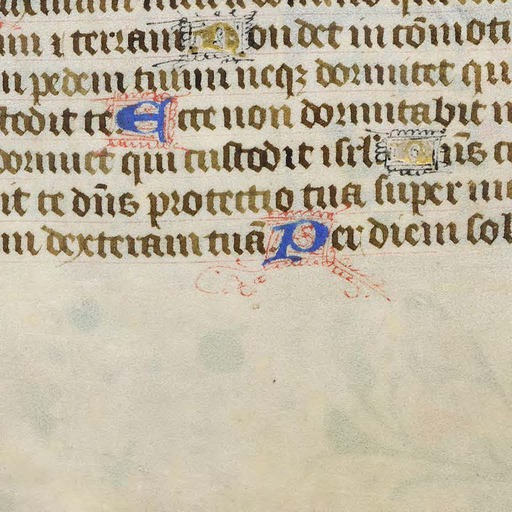 m ⁊ terram Non det in cōmoti
pedem tuum neqꝫ dormitet qui
todit te Ecce non dormitabit n
dormiet qui custodit isrl Dn̄s cu
it te dn̄s protectio tua super ma
m dexteram tuā. Per diem sol